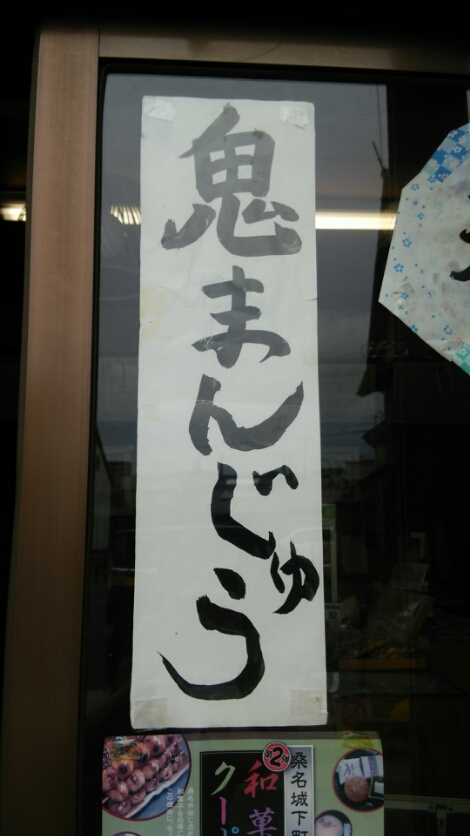 鬼まんじゅう
桑名城下町
第2弾
和菓
クーポ